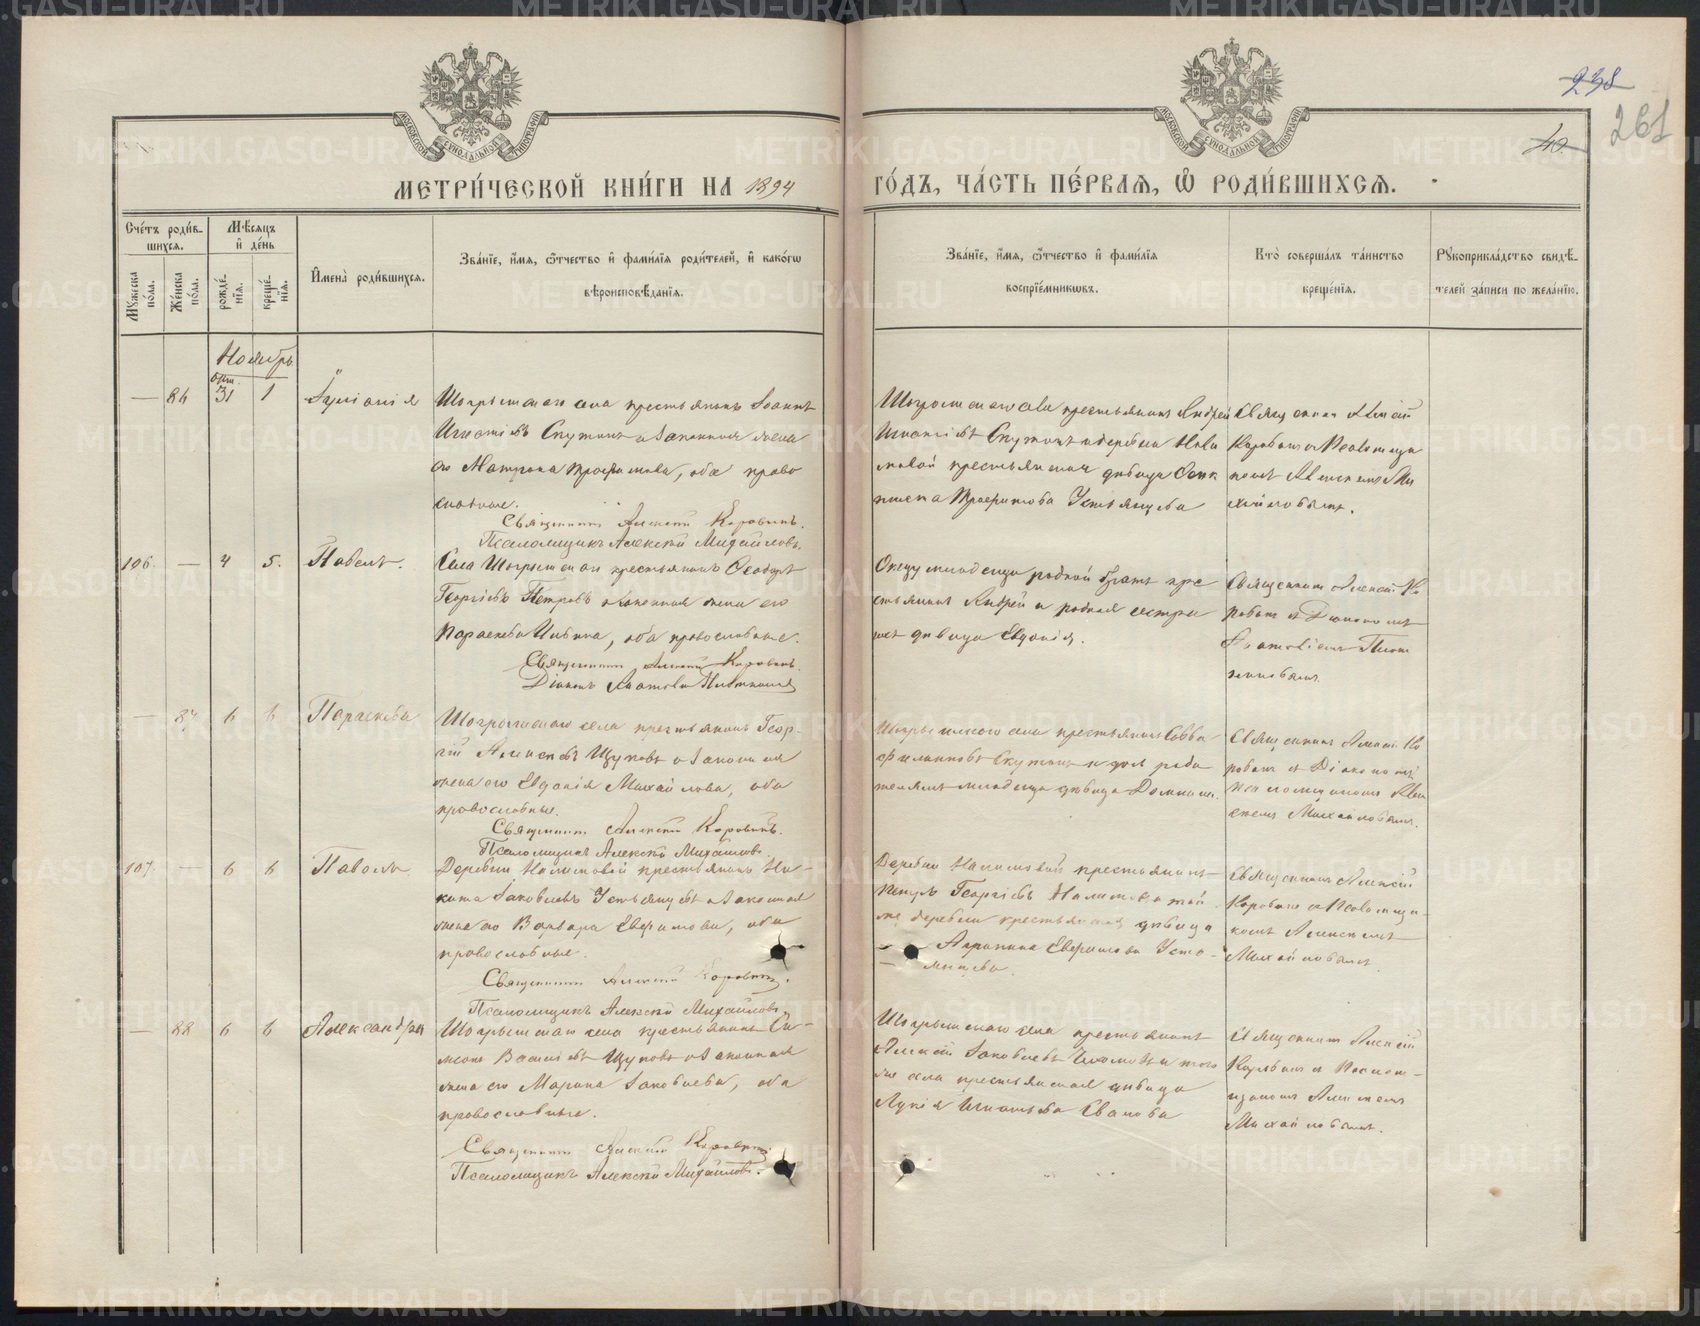 238
40.
261
МЕТРИ́ЧЕСКОЙ КНИ́ГИ НА 1894 ГО́ДЪ, ЧА́СТЬ ПЕ́РВАЯ, Ѡ РОДИ́ВШИХСЯ.
Сче́тъ роди́в-
шихся.
Мꙋ́жеска по́ла.
Же́нска по́ла.
Мѣ́сяцъ и де́нь
рожде́-
нїя.
креще́-
нїя.
Имена̀ роди́вшихся.
Зва́нїе, и́мя, ѻ҆́тчество и фами́лїя роди́телей, и како́гѡ
вѣроисповѣ́данїя.
Зва́нїе, и́мя, ѻ҆́тчество и фами́лїя
воспрїе́мникѡвъ.
Кто̀ соверша́лъ та́инство
креще́нїя.
Рꙋкоприкла́дство свидѣ́-
телей за́писи по жела́нїю.
Ноябрь
Окт.
— 86 31 1 Іуліанія
Шогрышскаго села крестьянинъ Іоаннъ
Игнатіевъ Скутинъ и законная жена
его Матрона Трофимова, оба право
славные.
Священникъ Алексій Коровинъ.
Псаломщикъ Алексѣй Михайловъ.
Шогрышскаго села крестьянинъ Андрей
Игнатіевъ Скутинъ и деревни Нали
мовой крестьянская дѣвица
Трофимова Устьянцева
Священникъ Алексій
Коровинъ и Псаломщи
комъ Алексѣемъ Ми
хайловымъ.
106. — 4 5. Павелъ.
Села Шогрышскаго крестьянинъ Ѳеодоръ
Георгіевъ Петровъ и законная жена его
Параскева Ивбина, оба православные.
Священникъ Алексій Коровинъ.
Діаконъ Анатолій
Отцу младенца родной братъ кре
стьянинъ Андрей и родная сестра
дѣвица Евдокія.
Священникъ Алексій Ко
ровинъ и Діакономъ
Анатоліемъ
— 87 6 6 Параскева
Шогрышскаго села крестьянинъ Геор-
гій Алексѣевъ Щуковъ и законная
жена его Евдокія Михайлова, оба
православные.
Священникъ Алексій Коровинъ.
Псаломщикъ Алексѣй Михайловъ.
Шогрышскаго села крестьянинъ Савва
Филиповъ Скутинъ и дочь роди
телямъ младенца дѣвица
Священникъ Алексій Ко
ровинъ и Діакономъ
Псаломщикомъ Алек
сѣемъ Михайловымъ.
107. — 6 6 Павелъ
Деревни Налимовой крестьянинъ Ни-
кита Іаковлевъ Устьянцевъ и законная
жена его Варвара Евфимова, оба
православные.
Священникъ Алексій Коровинъ.
Псаломщикъ Алексѣй Михайловъ.
Деревни Налимовой крестьянинъ
Петръ Георгіевъ Налимовъ и той
же деревни крестьянская дѣвица
Агрипина Евфимова Усть-
янцева.
Священникъ Алексій
Коровинъ и Псаломщи-
комъ Алексѣемъ
Михайловымъ.
— 88 6 6 Александра
Шогрышскаго села крестьянинъ Си-
меонъ Василіевъ Щуковъ и законная
жена его Марина Іаковлева, оба
православные.
Священникъ Алексій Коровинъ.
Псаломщикъ Алексѣй Михайловъ.
Шогрышскаго села крестьянинъ
Алексій Іаковлевъ и того
же села крестьянская дѣвица
Лукія Игнатьева Иванова
Священникъ Алексій
Коровинъ и Псалом-
щикомъ Алексѣемъ
Михайловымъ.
METRIKI.GASO-URAL.RU